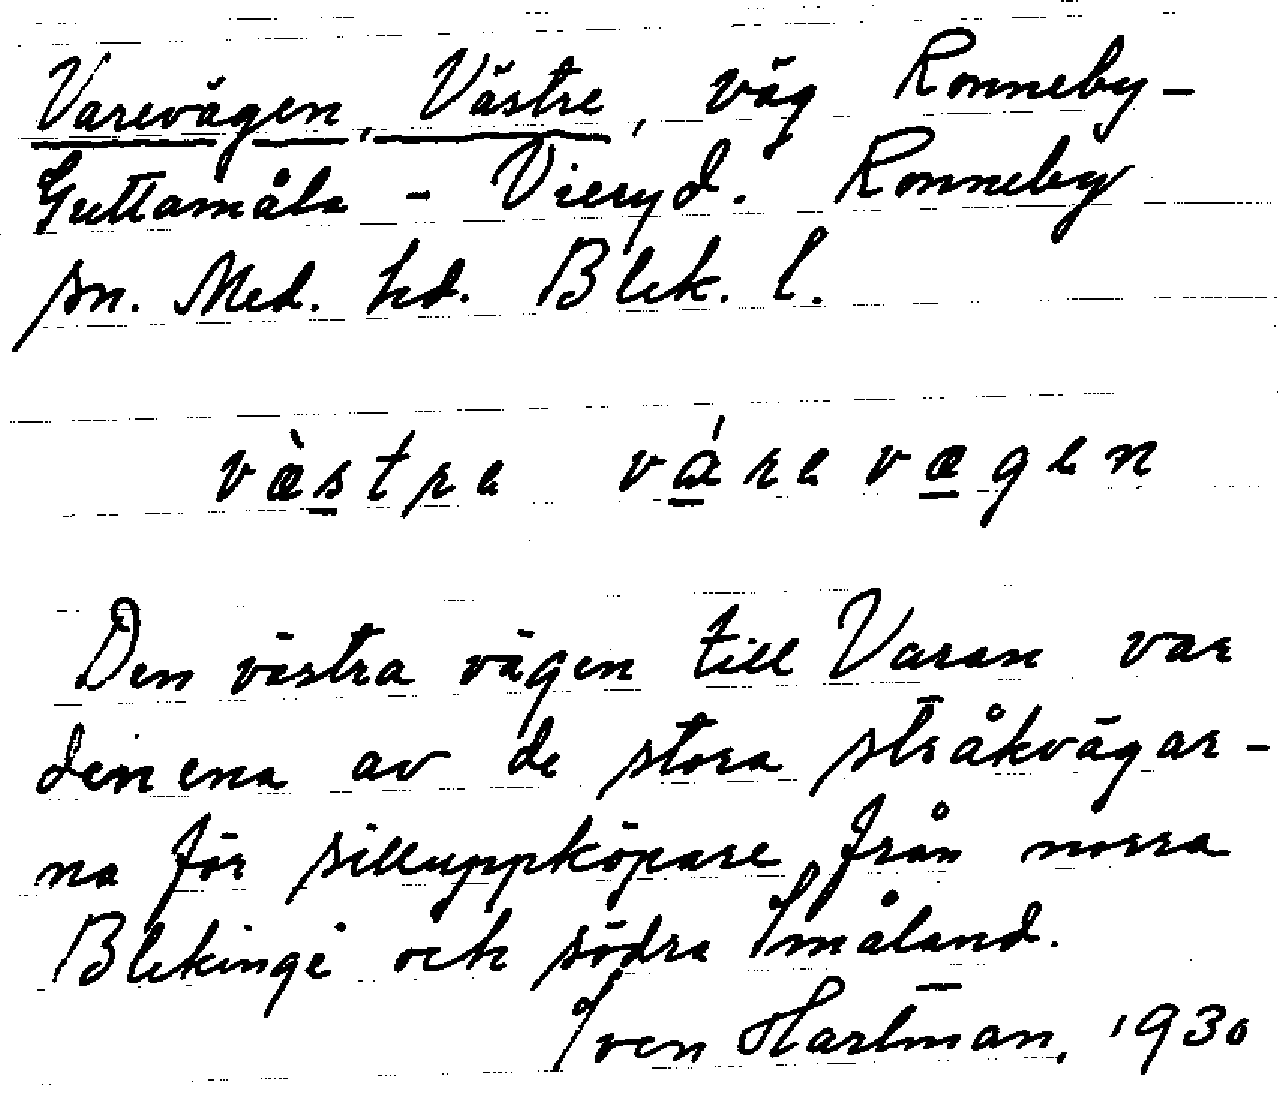 Varevägen, Västre, väg Ronneby-
Guttamåla - Vieryd. Ronneby
sn. Med. hd. Blek. l.
væ̀stre várevægen
Den västra vägen till Varan var
den ena av de stora stråkvägar-
na för silluppköpare från norra
Blekinge och södra Småland.
Sven Hartman, 1930